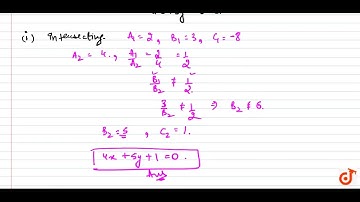 (i) Intersecting A₁ = 2, B₁ = 3, C₁ = -8
A₂ = 4, A₁/A₂ = 2/4 = 1/2
B₁/B₂ ≠ 1/2
3/B₂ ≠ 1/2 ⇒ B₂ ≠ 6.
B₂ = 5, C₂ = 1.
4x + 5y + 1 = 0.
Ans